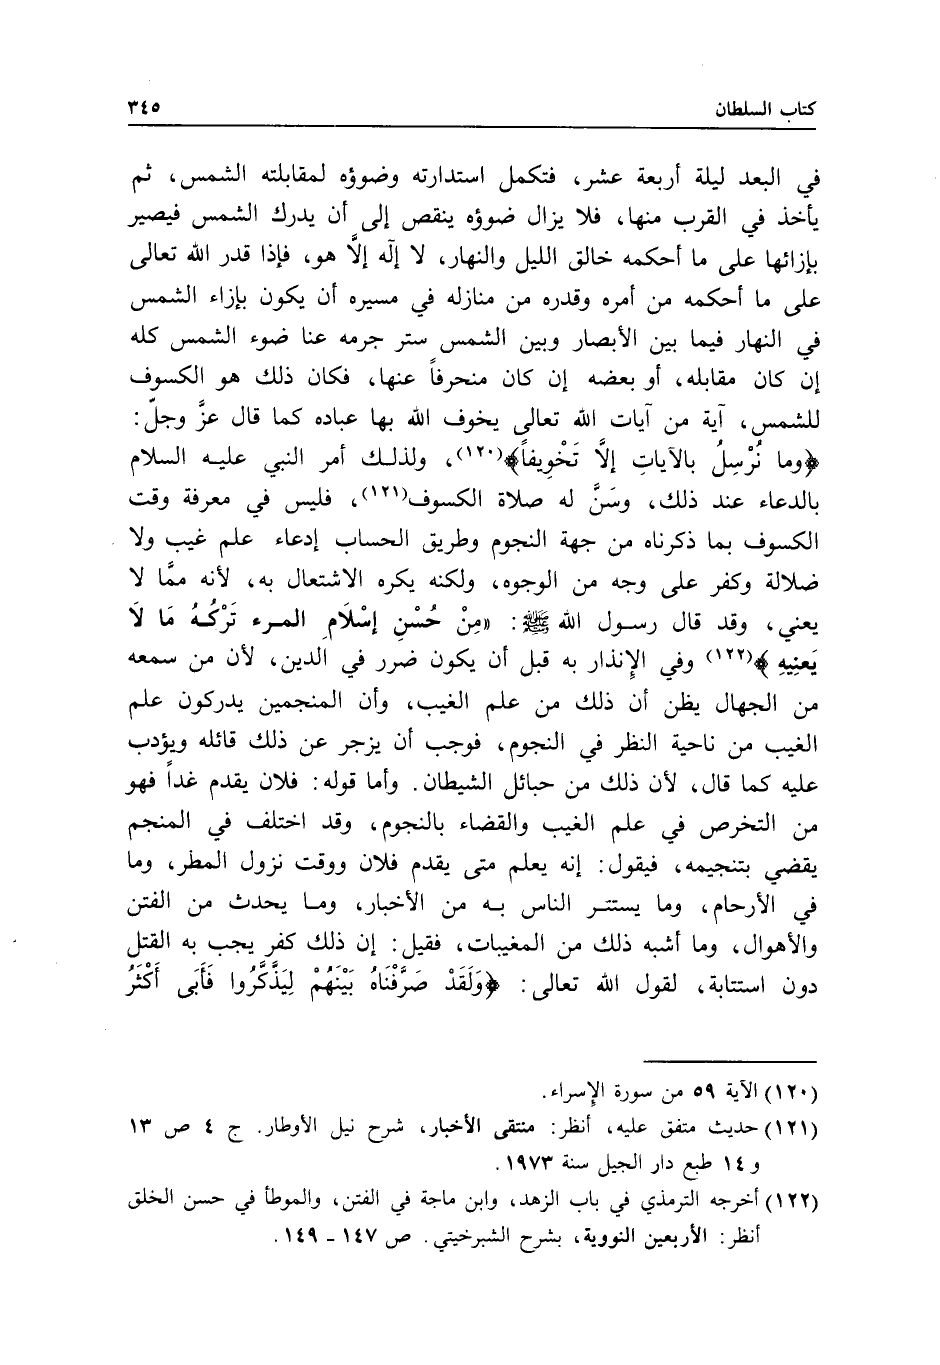 كتاب السلطان ٣٤٥
في البعد ليلة أربعة عشر، فتكمل استدارته وضوؤه لمقابلته الشمس، ثم
يأخذ في القرب منها، فلا يزال ضوؤه ينقص إلى أن يدرك الشمس فيصير
بإزائها على ما أحكمه خالق الليل والنهار، لا إلَه إلاَّ هو، فإذا قدر الله تعالى
على ما أحكمه من أمره وقدره من منازله في مسيره أن يكون بإزاء الشمس
في النهار فيما بين الأبصار وبين الشمس ستر جرمه عنا ضوء الشمس كله
إن كان مقابله، أو بعضه إن كان منحرفاً عنها، فكان ذلك هو الكسوف
للشمس، آية من آيات الله تعالى يخوف الله بها عباده كما قال عزَّ وجلّ:
﴿وما نُرْسِلُ بالآياتِ إلاَّ تَخْوِيفاً﴾(١٢٠)، ولذلك أمر النبي عليه السلام
بالدعاء عند ذلك، وسَنَّ له صلاة الكسوف(١٢١)، فليس في معرفة وقت
الكسوف بما ذكرناه من جهة النجوم وطريق الحساب إدعاء علم غيب ولا
ضلالة وكفر على وجه من الوجوه، ولكنه يكره الاشتعال به، لأنه ممَّا لا
يعني، وقد قال رسول الله ﷺ: «مِنْ حُسْنِ إسْلَامِ المرء تَرْكُهُ مَا لَا
يَعنِيهِ﴾(١٢٢) وفي الإنذار به قبل أن يكون ضرر في الدين، لأن من سمعه
من الجهال يظن أن ذلك من علم الغيب، وأن المنجمين يدركون علم
الغيب من ناحية النظر في النجوم، فوجب أن يزجر عن ذلك قائله ويؤدب
عليه كما قال، لأن ذلك من حبائل الشيطان. وأما قوله: فلان يقدم غداً فهو
من التخرص في علم الغيب والقضاء بالنجوم، وقد اختلف في المنجم
يقضي بتنجيمه، فيقول: إنه يعلم متى يقدم فلان ووقت نزول المطر، وما
في الأرحام، وما يستتر الناس به من الأخبار، وما يحدث من الفتن
والأهوال، وما أشبه ذلك من المغيبات، فقيل: إن ذلك كفر يجب به القتل
دون استتابة، لقول الله تعالى: ﴿وَلَقَدْ صَرَّفْنَاهُ بَيْنَهُمْ لِيَذَّكَّرُوا فَأَبَى أَكْثَرُ
(١٢٠) الآية ٥٩ من سورة الإسراء.
(١٢١) حديث متفق عليه، أنظر: منتقى الأخبار، شرح نيل الأوطار. ج ٤ ص ١٣
و ١٤ طبع دار الجيل سنة ١٩٧٣.
(١٢٢) أخرجه الترمذي في باب الزهد، وابن ماجة في الفتن، والموطأ في حسن الخلق
أنظر: الأربعين النووية، بشرح الشبرخيتي. ص ١٤٧ - ١٤٩.